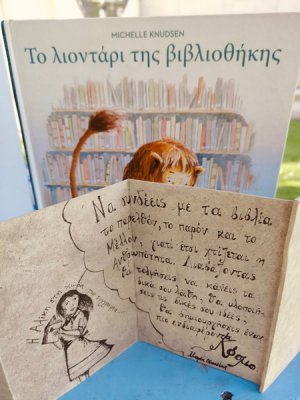 MICHELLE KNUDSEN
Το λιοντάρι της βιβλιοθήκης
Να συνδέεις με τα βιβλία
το παρελθόν, το παρόν και το
Μέλλον, γιατί έτσι χτίζεται η
Ανθρωπότητα. Διαβάζοντας
θα τολμήσεις να κάνεις τα
δικά σου λάθη, θα υλοποιή-
σεις τις δικές σου ιδέες,
θα δημιουργήσεις έναν
πιο ενδιαφέροντα
Κόσμο
Η Αλίκη στη χώρα των